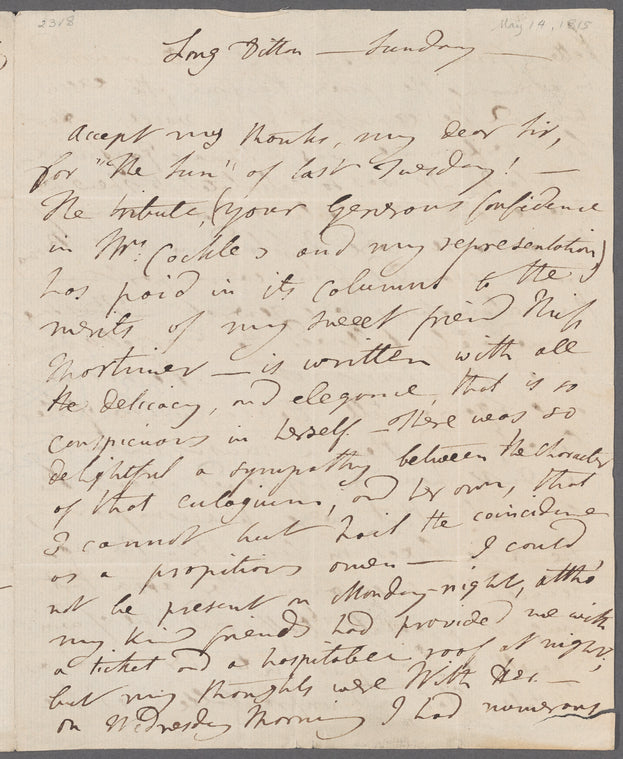 2318
May 14, 1815
Long Ditton — Sunday —
Accept my thanks, my dear Sir,
for "The Sun" of last Tuesday! —
The tribute, (your Generous Confidence
in Mrs. Cockle's and my representation)
has paid in its Columns to the
merits of my sweet friend Miss
Mortimer — is written with all
the delicacy, and elegance, that is so
conspicuous in herself. — There was so
delightful a sympathy between the Character
of that eulogium, and her own, that
I cannot but hail the coincidence
as a propitious omen — I could
not be present on Monday-night, altho'
my kind friends had provided me with
a ticket and a hospitable roof at night;
but my thoughts were With Her. —
on Wednesday Morning I had numerous